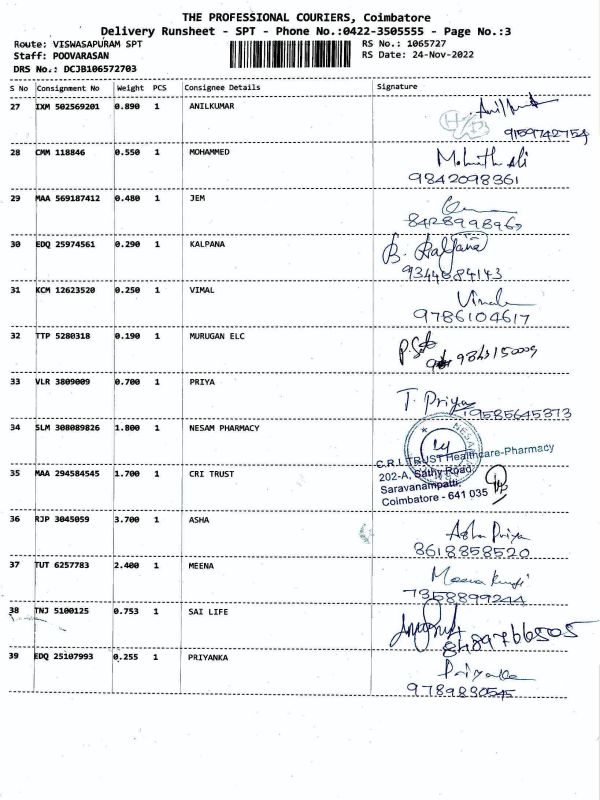 THE PROFESSIONAL COURIERS, Coimbatore
Delivery Runsheet - SPT - Phone No.:0422-3505555 - Page No.:3
Route: VISWASAPURAM SPT
RS No.: 1065727
Staff: POOVARASAN
RS Date: 24-Nov-2022
DRS No.: DCJB106572703
S No Consignment No Weight PCS Consignee Details Signature
27 IXM 502569201 0.890 1 ANILKUMAR
9159742754
28 CMM 118846 0.550 1 MOHAMMED Ali
9842098361
29 MAA 569187412 0.480 1 JEM
30 EDQ 25974561 0.290 1 KALPANA B. Kalpana
9344684143
31 KCM 12623520 0.250 1 VIMAL Vimal
9786104617
32 TTP 5280318 0.190 1 MURUGAN ELC
33 VLR 3809009 0.700 1 PRIYA T. Priya
9585645373
34 SLM 308089826 1.800 1 NESAM PHARMACY NESAM
C.R.I. TRUST Healthcare-Pharmacy
35 MAA 294584545 1.700 1 CRI TRUST 202-A, Sathy Road,
Saravanampatti,
Coimbatore - 641 035
36 RJP 3045059 3.700 1 ASHA Asha Priya
8618858520
37 TUT 6257783 2.400 1 MEENA Meena
7358899244
38 TNJ 5100125 0.753 1 SAI LIFE
8489766505
39 EDQ 25107993 0.255 1 PRIYANKA Priyanka
9789830545